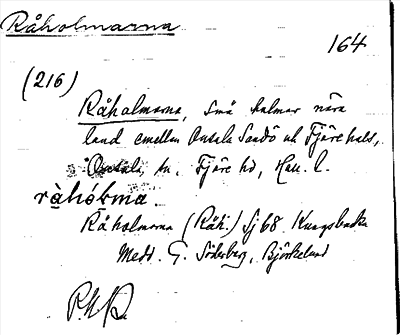 Råholmarna
164
(216)
Råholmarna, små holmar nära
land emellan Onsala Sandö och Fjäre hals,
Onsala sn. Fjäre hd, Hall. l.
Råholmarna (Råh.) Sj 68 Kungsbacka
Medd. G. Söderberg, Björkelund